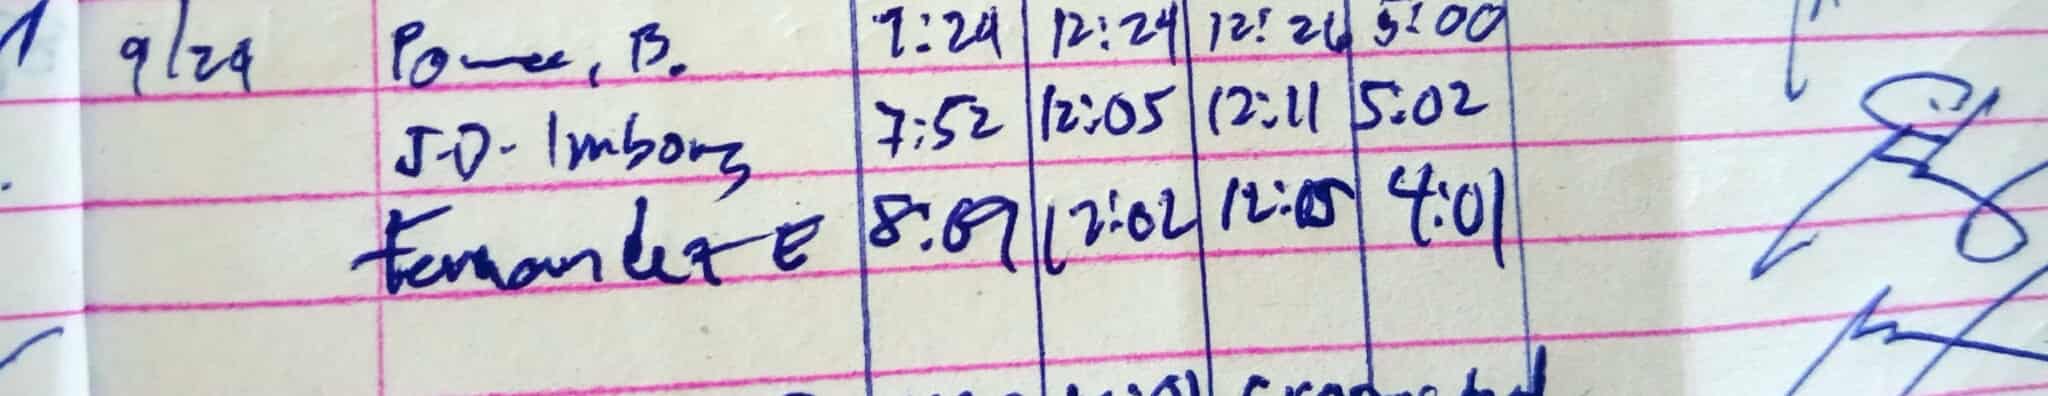 9/24 B. 7:24 12:24 12:26 5:00
J.D. Imbong 7:52 12:05 12:11 5:02
Fernandez E 8:09 12:02 12:05 4:01